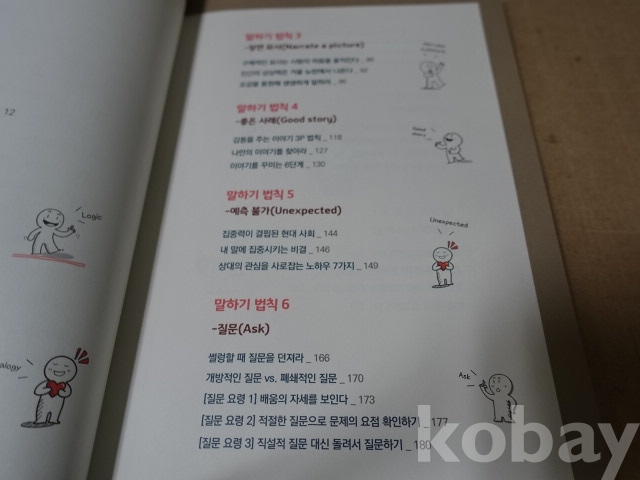 12
Logic
alogy
말하기 법칙 3
-장면 묘사(Narrate a picture)
구체적인 묘사는 사람의 마음을 움직인다 _ 86
오감을 동원해 생생하게 말하라 _ 96
말하기 법칙 4
-좋은 사례(Good story)
감동을 주는 이야기 3P 법칙 _ 118
나만의 이야기를 찾아라 _ 127
이야기를 꾸미는 6단계 _ 130
말하기 법칙 5
-예측 불가(Unexpected)
Unexpected
집중력이 결핍된 현대 사회 _ 144
내 말에 집중시키는 비결 _ 146
상대의 관심을 사로잡는 노하우 7가지 _ 149
말하기 법칙 6
-질문(Ask)
썰렁할 때 질문을 던져라 _ 166
개방적인 질문 vs. 폐쇄적인 질문 _ 170
Ask
[질문 요령 1] 배움의 자세를 보인다 _ 173
[질문 요령 2] 적절한 질문으로 문제의 요점 확인하기 _ 177
[질문 요령 3] 직설적 질문 대신 돌려서 질문하기 _ 180
kobay